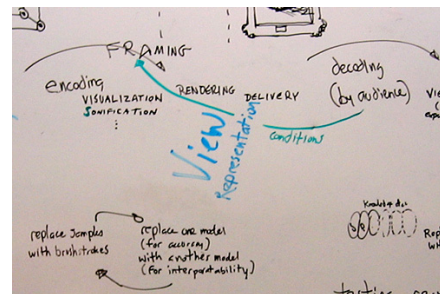 FRAMING
encoding
VISUALIZATION
SONIFICATION
...
RENDERING
DELIVERY
decoding
(by audience)
View
Representation
conditions
replace samples
with brushstrokes
replace one model
(for accuracy)
with another model
(for interpretability)